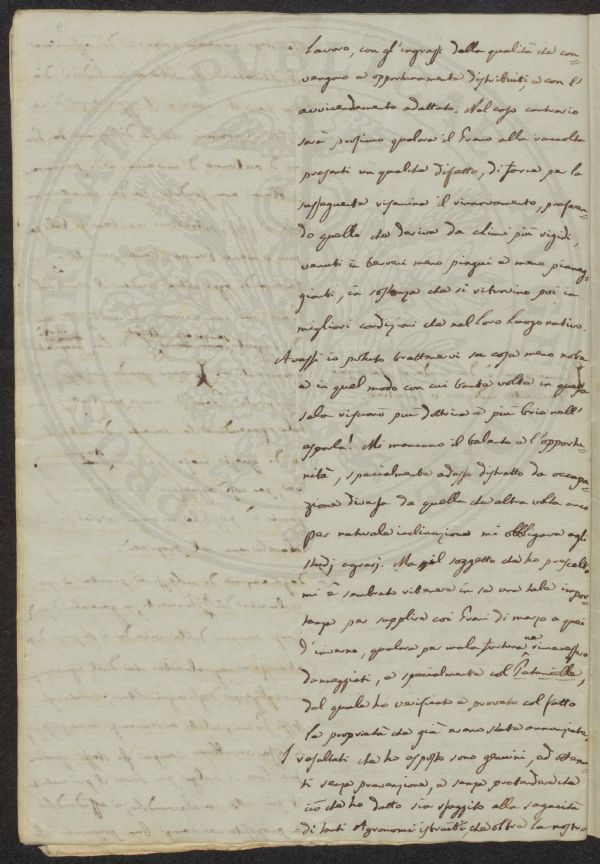 lavoro, con gl'ingrassi della qualità che con-
vengono e opportunamente distribuiti, e con l'
avvicendamento adattato. Nel caso contrario
sarà prossimo qualora il Grano alla raccolta
presenti un qualche difetto, di farne per la
susseguente risemina il rinnovamento, preferen-
do quello che deriva da climi più rigidi,
venuti in terreni meno pingui e meno pianeg-
gianti, in sostanza che si ritrovino poi in
migliori condizioni che nel loro luogo nativo.
Avessi io potuto trattenervi su cose meno note
e in quel modo con cui tante volte in questa
sala risuonò più dottrina e più brio nell'
esporle! Mi mancano il talento e l'opportu-
nità, specialmente adesso distratto da occupa-
zione diversa da quella che altra volta anco
per naturale inclinazione mi obbligava agli
studj agrarj. Ma il soggetto che ho prescelto
mi è sembrato ritenere in se una tale impor-
tanza per supplire coi Grani di marzo a quei
d'inverno, qualora per mala fortuna ne rimanessero
danneggiati, e specialmente col
dal quale ho verificato e provato col fatto
le proprietà che già erano state annunziate.
I resultati che ho esposto sono genuini, ed ottenu-
ti senza prevenzione, e senza pretendere che
ciò che ho detto sia sfuggito alla sagacità
di tanti Agronomi istruiti, che oltre la nostra